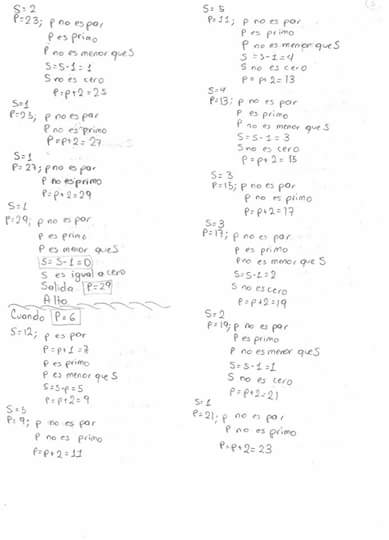 S=2
P=23; p no es par
P es primo
P no es menor que S
S=S-1=1
S no es cero
P=p+2=25
S=1
P=25; p no es par
P no es primo
P=p+2=27
S=1
P=27; p no es par
P no es primo
P=p+2=29
S=1
P=29; p no es par
P es primo
P es menor que S
S=S-1=0
S es igual a cero
Salida P=29
Alto
Cuando P=6
S=12; P es par
P=p+1=7
P es primo
P es menor que S
S=S-p=5
P=p+2=9
S=5
P=9; p no es par
P no es primo
P=p+2=11
S=5
P=11; p no es par
P es primo
P no es menor que S
S=S-1=4
S no es cero
P=p+2=13
S=4
P=13; p no es par
P es primo
P no es menor que S
S=S-1=3
S no es cero
P=p+2=15
S=3
P=15; p no es par
P no es primo
P=p+2=17
S=3
P=17; p no es par
P es primo
P no es menor que S
S=S-1=2
S no es cero
P=p+2=19
S=2
P=19; p no es par
P es primo
P no es menor que S
S=S-1=1
S no es cero
P=p+2=21
S=1
P=21; p no es par
P no es primo
P=p+2=23